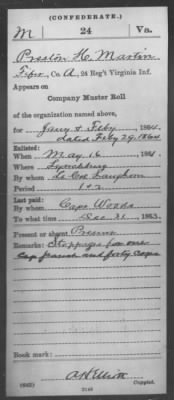 (CONFEDERATE.)
M 24 Va.
Preston H. Martin
Fifer, Co. A, 24 Reg't Virginia Inf.
Appears on
Company Muster Roll
of the organization named above,
for Jany & Feby, 1864.
dated Feby 29, 1864
Enlisted:
When May 16, 1861.
Where Lynchburg
By whom Lt Col Langhorn
Period 1 &
Last paid:
By whom Capt Woods
To what time Dec 31, 1863.
Present or absent Present
Remarks: Stoppages for one
and forty
Book mark:
(642) Copyist.